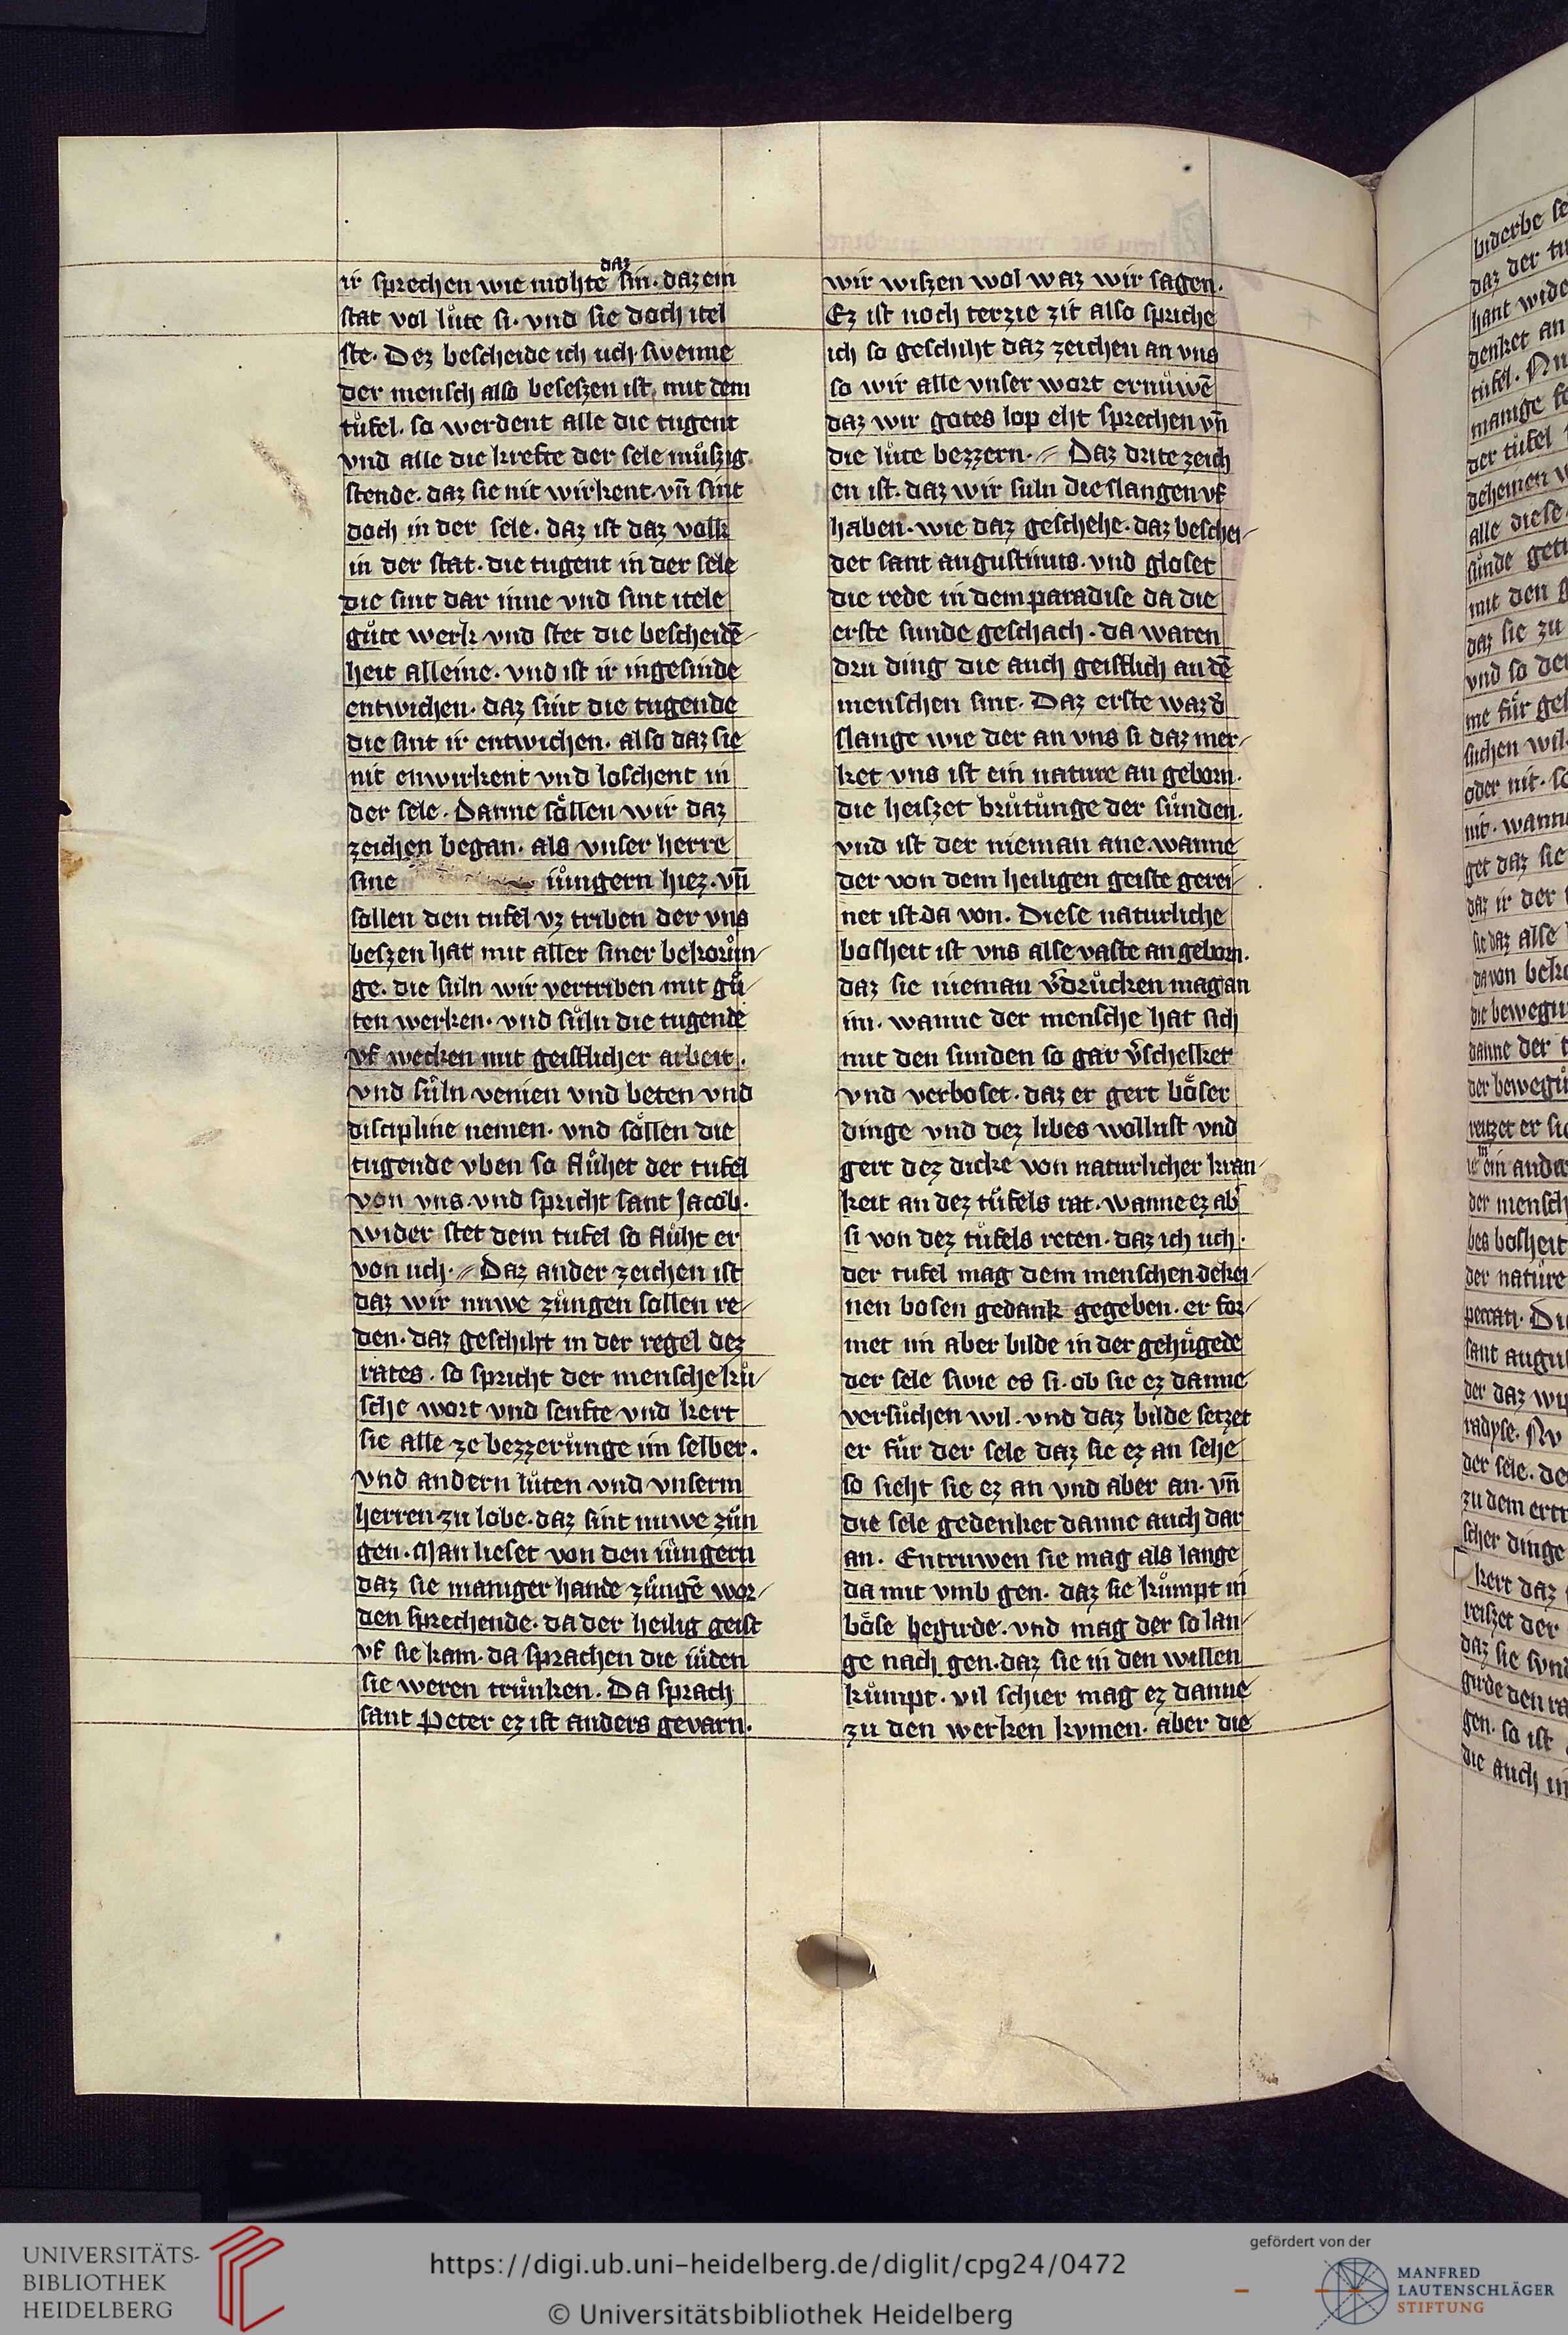 ir sprechen wie mohte daz sin. daz ein
stat vol lu̍te si. vnd sie doch itel
ste. Dez bescheide ich uch. swenne
der mensch also beseszen ist. mit dem
tu̍fel. so werdent alle die tugent
vnd alle die krefte der sele mu̍szig
stende. daz sie nit wirkent. vn̄ sint
doch in der sele. daz ist daz volk
in der stat. die tugent in der sele
die sint dar inne vnd sint itele
gu̍te werk vnd stet die bescheidē-
heit alleine. vnd ist ir ingesinde
entwichen. daz sint die tugende
die sint ir entwichen. also daz sie
nit enwirkent vnd loschent in
der sele. Danne so̍llen wir daz
zeichen began. als vnser herre
sine iu̍ngern hiez. vn̄
sollen den tufel vz triben der vns
beszen hat mit aller siner bekoru̍n-
ge. die suln wir vertriben mit gu̍-
ten werken. vnd su̍ln die tugende
vf wecken mit geistlicher arbeit.
vnd su̍ln venien vnd beten vnd
discipline nemen. vnd so̍llen die
tugende vben so flu̍het der tufel
von vns. vnd spricht sant Jacob.
wider stet dem tufel so flu̍ht er
von uch. Daz ander zeichen ist
daz wir nuwe zu̍ngen sollen re-
den. daz geschiht in der regel dez
rates. so spricht der mensche ku̍-
sche wort vnd senfte vnd kert
sie alle ze bezzeru̍nge im selber.
vnd andern lu̍ten vnd vnserm
herren zu lobe. daz sint nuwe zu̍n
gen. Man lieset von den iu̍ngern
daz sie maniger hande zu̍ngē wor-
den sprechende. da der heilig geist
vf sie kam. da sprachen die iu̍den
sie weren tru̍nken. Da sprach
sant Peter ez ist anders gevarn.
wir wiszen wol waz wir sagen.
Ez ist noch terzie zit also spriche
ich so geschiht daz zeichen an vns
so wir alle vnser wort ernu̍wē
daz wir gotes lop eht sprechen vn̄
die lu̍te bezzern. Daz drite zeich
en ist. daz wir suln die slangen vf
haben. wie daz geschehe. daz beschei-
det sant augustinus. vnd gloset
die rede in dem paradise da die
erste sunde geschach. da waren
dru ding die auch geistlich an dē
menschen sint. Daz erste waz d̾
slange wie der an vns si daz mer-
ket vns ist ein nature an geborn.
die heiszet bru̍tu̍nge der su̍nden.
vnd ist der nieman ane wanne
der von dem heiligen geiste gerei-
net ist. da von. Diese naturliche
bosheit ist vns alse vaste an geborn.
daz sie nieman v̾dru̍cken mag an
im. wanne der mensche hat sich
mit den sunden so gar v̾schelket
vnd verboset. daz er gert bo̍ser
dinge vnd dez libes wollust vnd
gert dez dicke von naturlicher kran-
keit an dez tu̍fels rat. wanne ez ab̾
si von dez tu̍fels reten. daz ich uch.
der tufel mag dem menschen dekei-
nen bosen gedank gegeben. er for-
met im aber bilde in der gehu̍gede
der sele swie es si. ob sie ez danne
versu̍chen wil. vnd daz bilde setzet
er fu̍r der sele daz sie ez an sehe
so sieht sie ez an vnd aber an. vn̄
die sele gedenket danne auch dar
an. Entruwen sie mag als lange
da mit vmb gen. daz sie ku̍mpt in
bo̍se begirde. vnd mag der so lan-
ge nach gen. daz sie in den willen
ku̍mpt. vil schier mag ez danne
zu den werken kvmen. aber die
biderbe se
daz der tu
hant wide
denket an
tufel. Nu
manige se
der tu̍fel
deheinen
alle diese
su̍nde get
mit den
daz sie zu
vnd so de
me fu̍r ge
suchen wil
oder nit. s
nit. wann
get daz sie
daz ir der
sie daz alse
da von bek
die bewegu
danne der t
der bewegu̍
reitzet er si
ein ander
der mensch
bes bosheit
der nature
peccati. Di
sant augus
der daz
radyse. Nv
der sele. de
zu dem ert
scher dinge
kert daz
reiszet der
daz sie svn
girde den ra
gen. so ist
die auch in
UNIVERSITÄTS-
BIBLIOTHEK
HEIDELBERG
https://digi.ub.uni-heidelberg.de/diglit/cpg24/0472
© Universitätsbibliothek Heidelberg
gefördert von der
MANFRED
LAUTENSCHLÄGER
STIFTUNG